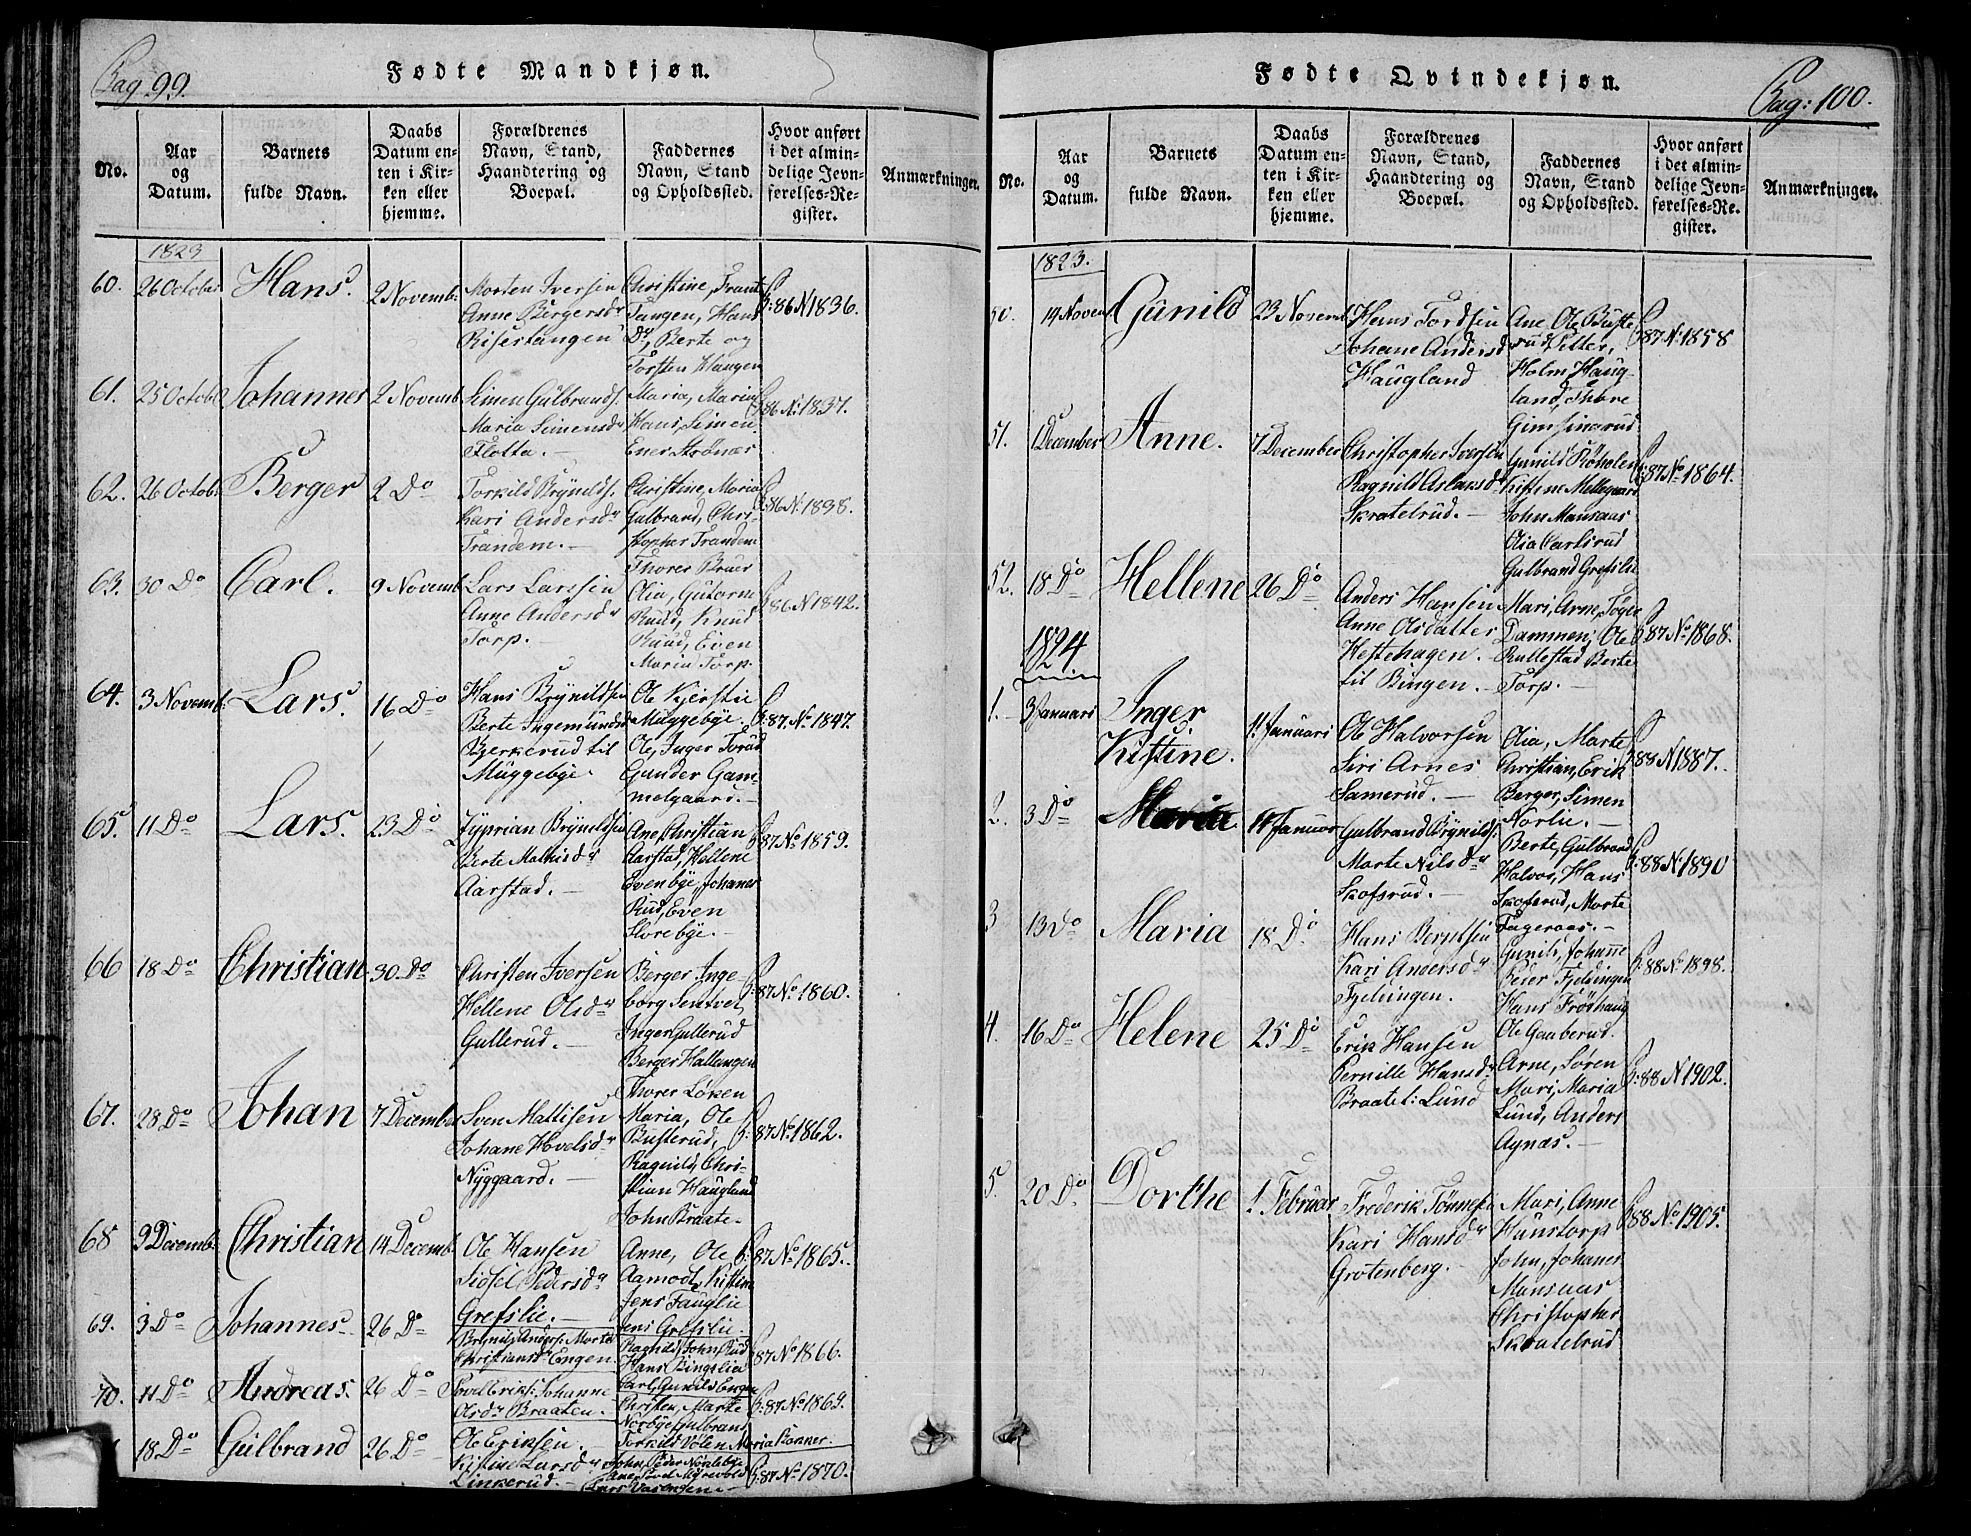 Pag. 99.
Fødte Mandkjøn.
No.
Aar og Datum.
Barnets fulde Navn.
Daabs Datum enten i Kirken eller hjemme.
Forældrenes Navn, Stand, Haandtering og Boepæl.
Faddernes Navn, Stand og Opholdssted.
Hvor anført i det almindelige Jevnførelses-Register.
Anmærkninger.
1823
60. 26 Octobr Hans. 2 Novemb:
Morten Iversen
Anne Bergersdr
Risestangen
Christine, Frant
Tangen, Hans
Do, Berte og
Torsten Haugen
S:86 N 1836.
61. 25 Octobr Johannes 2 Novemb
Simen Gulbrands.
Maria Simensdr
Flotta.
Maria, Maria
Hans, Simen
Ener Strönes
S:86 N: 1837.
62. 26 Octob: Berger 2 Do
Torkild Brynilds.
Kari Andersdr
Trandem.
Christine, Maria
Gulbrand, Chri-
stopher Trandem
Thorer Bruer
S:86 N: 1838.
63. 30 Do Carl. 9 Novemb
Lars Larssen
Anne Andersdr
Torp.
Olia, Gutorm
Ruud, Knud
Ruud, Even
Maria Torp.
S:86 N 1842.
64. 3 Novemb: Lars. 16 Do
Hans Brynildsen
Berte Ingemundsd
Bjerkerud til
Muggebye.
Ole Kjerstie
Muggebye.
Ole, Inger Torud
Gunder Gam-
melgaard.
S:87. No 1847.
65. 11 Do Lars. 23 Do
Zyprian Brynildsen
Berte Mathisdr
Aarstad.
Ane, Christian
Aarstad, Hellene
Evenbye, Johanes
Rud, Even
Storebye.
S:87 No 1859.
66 18 Do Christian 30 Do
Christen Iversen
Hellene Olsdr
Gullerud.
Berger Inge-
borg Semsvet,
Inger Gullerud
Berger Hallangen
Thorer Løken
S:87 No 1860.
67. 28 Do Johan 7 December
Sven Mattisen
Johane Hovelsdr
Nyggaard.
Maria, Ole
Busterud,
Ragnild, Chri-
stian Haugland
John Braate
S:87 No 1862.
68 9 Decemb: Christian 14 Decemb
Ole Hansen
Sidsel Pedersdr
Grefslie.
Anne, Ole
Aamodt, Kistine
Jens Fauglie
Jens Grefslie
S:87 No 1865.
69. 3 Do Johannes 26 Do
Brynild Anders: Marte
Christiansdr Engen
Ragnild, John Rud
Hans Bingslia
S:87 No 1866.
70. 11 Do Andreas. 26 Do
Povel Eriks: Johanne
Olsdr Braaten.
Carl, Gunild Engen
Christen, Marte
Norbye, Gulbrand
S:87 No 1869.
18 Do Gulbrand 26 Do
Ole Eriksen
Kistine Larsdr
Linkerud.
Torkild Volen, Maria Konner.
John, Peder Nordebye
S:87 No 1870.
Pag: 100.
Fødte Qvindekjøn.
No.
Aar og Datum.
Barnets fulde Navn.
Daabs Datum enten i Kirken eller hjemme.
Forældrenes Navn, Stand, Haandtering og Boepæl.
Faddernes Navn, Stand og Opholdssted.
Hvor anført i det almindelige Jevnførelses-Register.
Anmærkninger.
1823.
50. 14 Novem Gunild 23 Novemb
Hans Tordsen
Johane Andersd
Haugland
Ane, Ole Buste
rud Petter,
Holm Haug-
land, Thore
Gimsinsrud
S:87 N: 1858
51. 1 December Anne. 7 December
Christopher Iversen
Ragnild Aslaksdr
Skratelrud.
Gunild Røholen
Kistine Mellegaard
John Mansaas
Olia Carlsrud
Gulbrand Grefslie
S:87 No 1864.
52. 18 Do Hellene 26 Do
Anders Hansen
Anne Olsdatter
Hestehagen.
til Bingen.
Mari, Arne, Töger
Dammen, Ole
Rullestad Berte
Torp.
S:87 No 1868.
1824
1. 3 Januari Inger
Kistine. 11 Januari
Ole Halvorsen
Siri Arnes
Samerud.
Olia, Marte
Christian, Erik
Berger, Simen
Norlie.
S:88 N 1887.
2. 3 Do Maria 11 Januar
Gulbrand Brynilds:
Marte Nilsdr
Skofsrud.
Berte, Gulbrand
Halvor, Hans
Skofsrud, Morte
Fageraas.
S:88 No 1890
3 13 Do Maria 18 Do
Hans Berntsen
Kari Andersdr
Fjeldingen.
Gunild, Johanne
Peder Fjeldingen
Hans Frøshaug
Ole Gaaberud.
S:88 No 1898.
4. 16 Do Helene 25 Do
Erik Hansen
Pernille Hansdr
Braatet: Lund
Arne, Søren
Mari, Maria
Lund, Anders
Aynæs.
S:88 N 1902.
5. 20 Do Dorthe 1. Februar
Frederik Tønnes
Kari Hansdr
Grotenberg.
Mari, Anne
Haustorp
John, Johanes
Mansaas
Christopher
Skratelrud
S:88 No 1905.